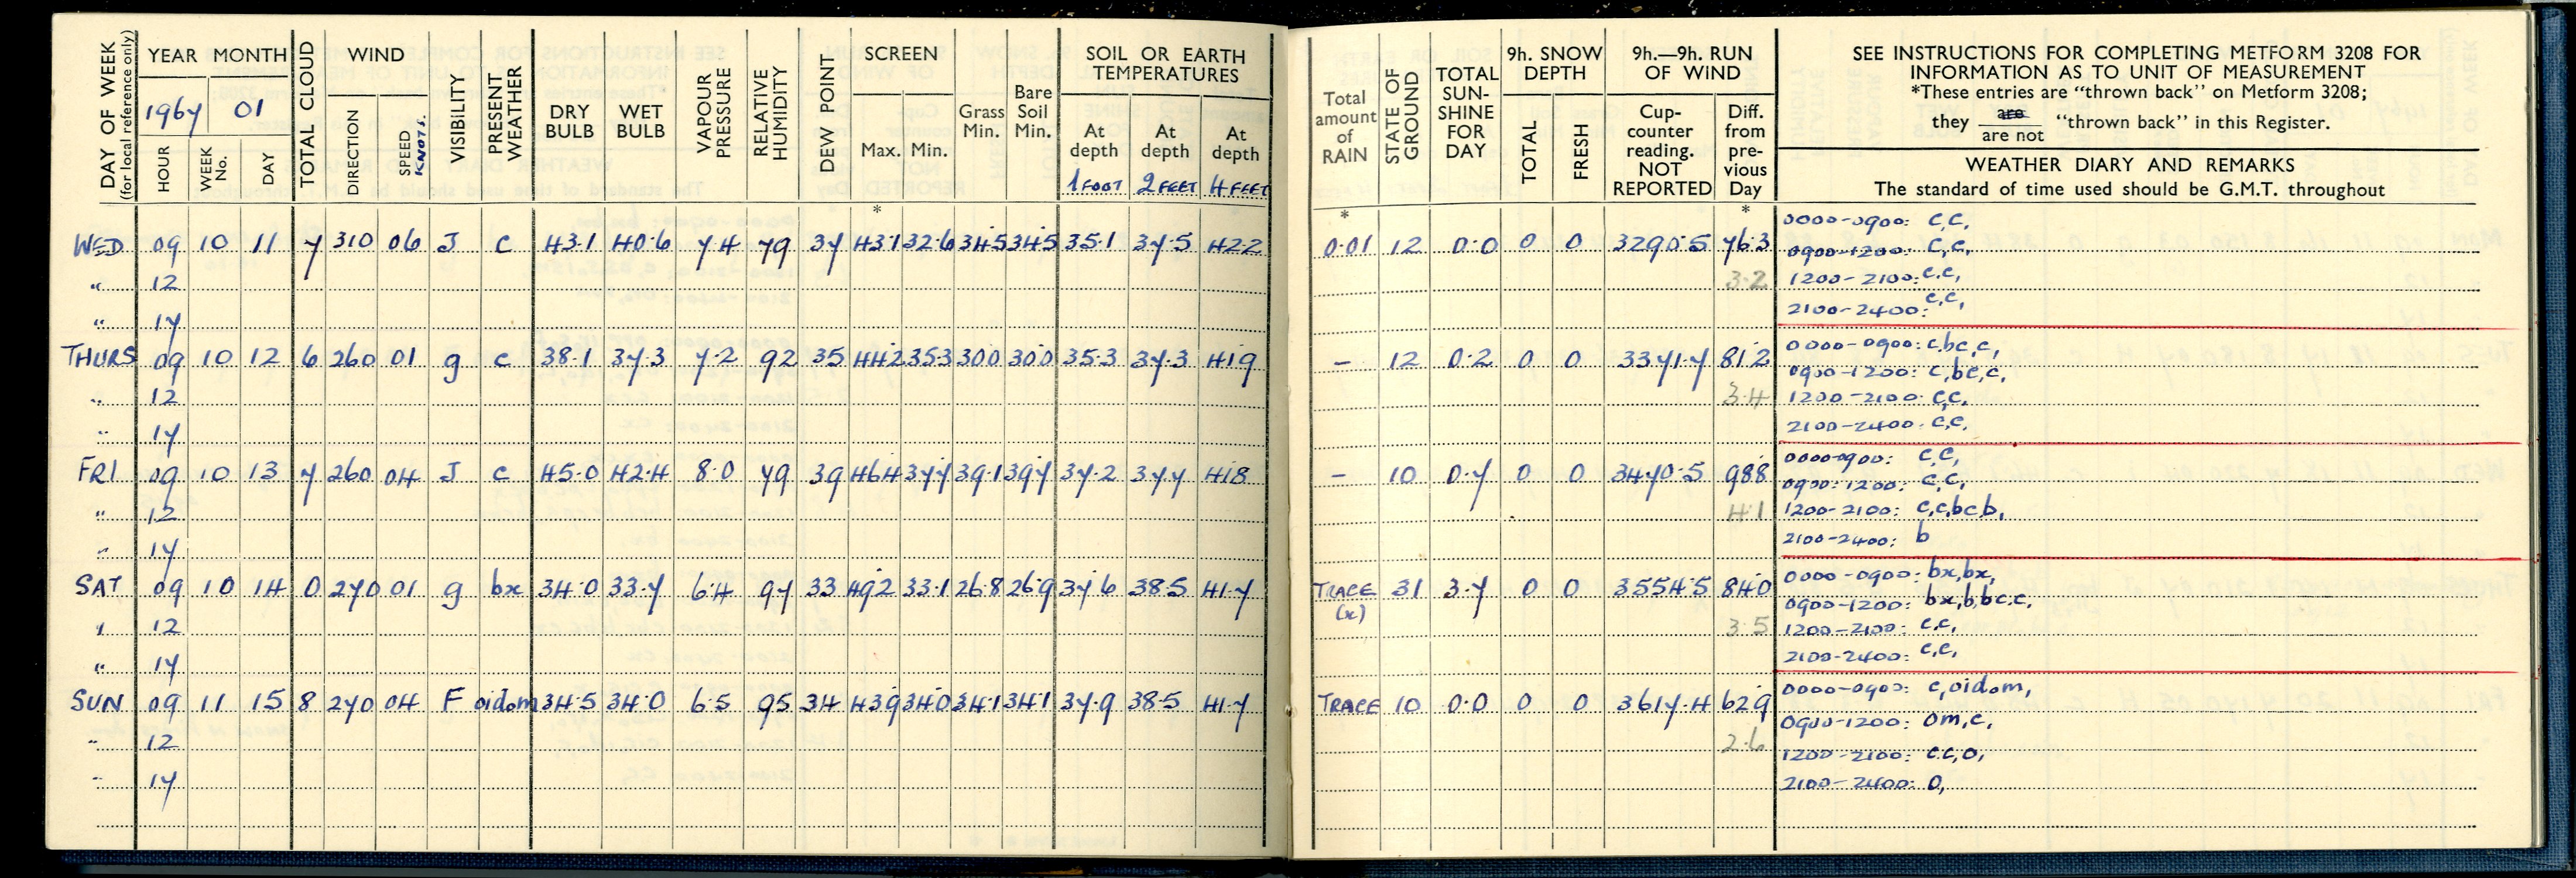 DAY OF WEEK (for local reference only)
YEAR MONTH
1967 01
HOUR WEEK No. DAY
TOTAL CLOUD
WIND
DIRECTION SPEED KNOTS.
VISIBILITY
PRESENT WEATHER
DRY BULB
WET BULB
VAPOUR PRESSURE
RELATIVE HUMIDITY
DEW POINT
SCREEN
Max. Min.
Grass Min.
Bare Soil Min.
SOIL OR EARTH TEMPERATURES
At depth At depth At depth
1 FOOT 2 FEET 4 FEET
Total amount of RAIN
STATE OF GROUND
TOTAL SUN-SHINE FOR DAY
9h. SNOW DEPTH
TOTAL FRESH
9h.—9h. RUN OF WIND
Cup-counter reading. NOT REPORTED
Diff. from pre-vious Day
SEE INSTRUCTIONS FOR COMPLETING METFORM 3208 FOR
INFORMATION AS TO UNIT OF MEASUREMENT
*These entries are "thrown back" on Metform 3208;
they are / are not "thrown back" in this Register.
WEATHER DIARY AND REMARKS
The standard of time used should be G.M.T. throughout
* * *
WED 09 10 11 7 310 06 J c 43.1 40.6 7.4 79 37 43.1 32.6 34.5 34.5 35.1 37.5 42.2 0.01 12 0.0 0 0 3290.5 76.3 0000-0900: c,c,
0900-1200: c,c,
" 12 3.2 1200-2100: c.c,
" 17 2100-2400: c,c,
THURS 09 10 12 6 260 01 g c 38.1 37.3 7.2 92 35 44.2 35.3 30.0 30.0 35.3 37.3 41.9 - 12 0.2 0 0 3371.7 81.2 0000-0900: c,bc,c,
0900-1200: c,bc,c,
" 12 3.4 1200-2100: c,c,
" 17 2100-2400: c,c,
FRI 09 10 13 7 260 04 J c 45.0 42.4 8.0 79 39 46.4 37.7 39.1 39.7 37.2 37.7 41.8 - 10 0.7 0 0 3470.5 98.8 0000-0900: c,c,
0900-1200: c,c,
" 12 4.1 1200-2100: c,c,bc,b,
" 17 2100-2400: b
SAT 09 10 14 0 270 01 g bx 34.0 33.7 6.4 97 33 49.2 33.1 26.8 26.9 37.6 38.5 41.7 TRACE (x) 31 3.7 0 0 3554.5 84.0 0000-0900: bx,bx,
0900-1200: bx,b,bc,c,
" 12 3.5 1200-2100: c,c,
" 17 2100-2400: c,c,
SUN 09 11 15 8 270 04 F oidom 34.5 34.0 6.5 95 34 43.9 34.0 34.1 34.1 37.9 38.5 41.7 TRACE 10 0.0 0 0 3617.4 62.9 0000-0900: c,oidom,
0900-1200: om,c,
" 12 2.6 1200-2100: c.c,o,
" 17 2100-2400: o,